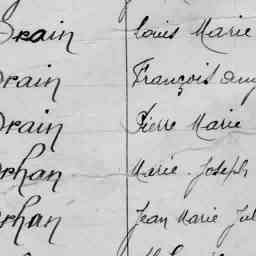 Drain Louis Marie
Drain François Aug
Drain Pierre Marie
Orhan Marie Joseph
Orhan Jean Marie Jul